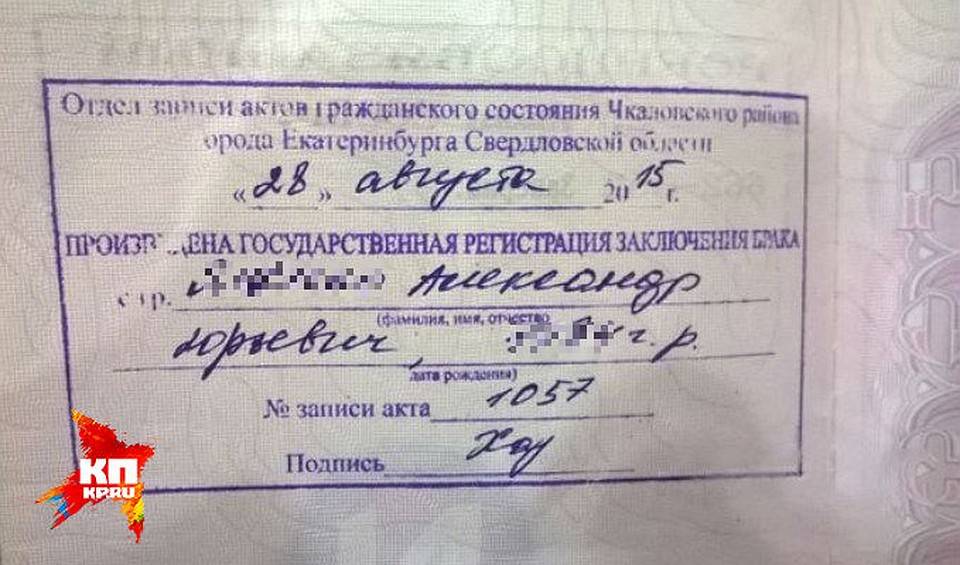 Отдел записи актов гражданского состояния Чкаловского района
города Екатеринбурга Свердловской области
«28» августа 2015 г.
ПРОИЗВЕДЕНА ГОСУДАРСТВЕННАЯ РЕГИСТРАЦИЯ ЗАКЛЮЧЕНИЯ БРАКА
с гр. Александр
(фамилия, имя, отчество
Юрьевич, г.р.
дата рождения)
№ записи акта 1057
Подпись
КП
KP.RU